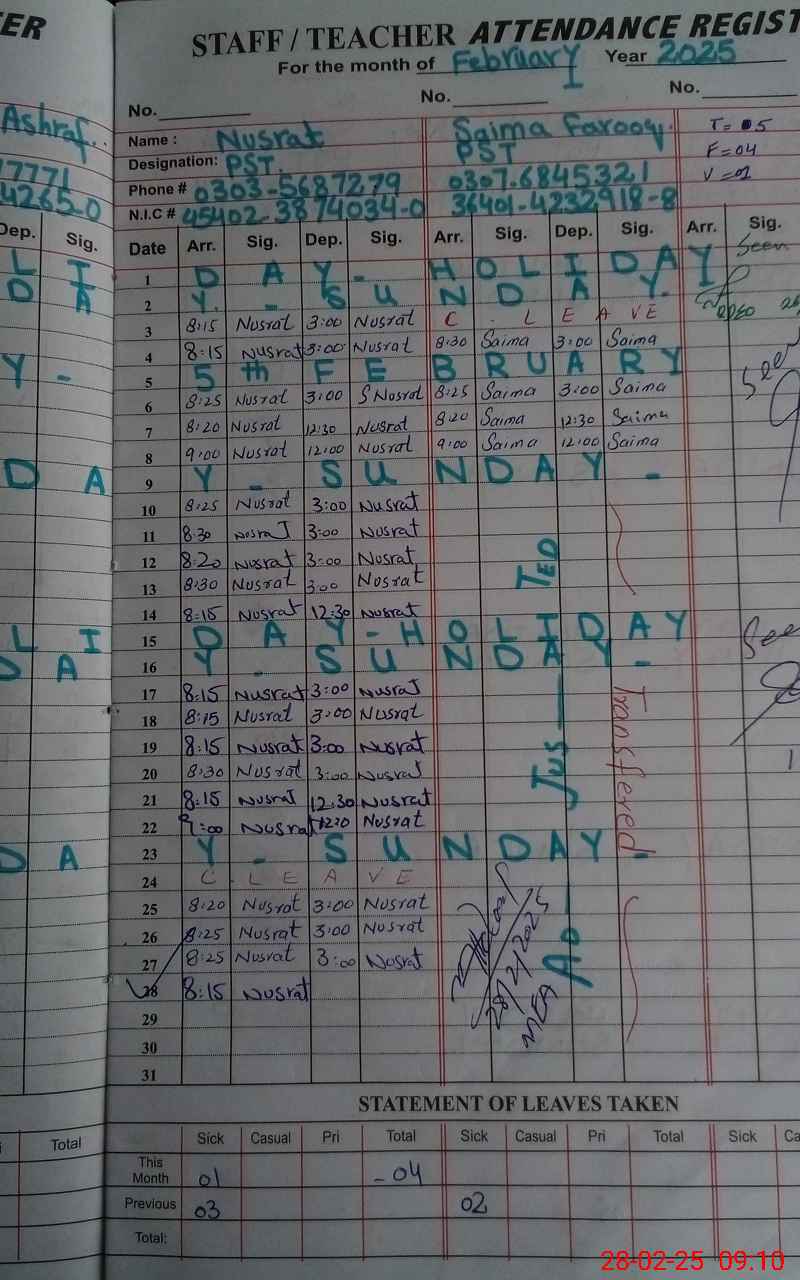 ER
STAFF / TEACHER ATTENDANCE REGIST
For the month of February Year 2025
No. No. No.
Ashraf.
Name : Nusrat Saima Farooq. T= 05
Designation: PST. PST F=04
17771 Phone # 0303-5687279 0307-6845321 V=01
4265-0 N.I.C # 45402-3874034-0 36401-4232918-8
Dep. Sig. Date Arr. Sig. Dep. Sig. Arr. Sig. Dep. Sig. Arr. Sig.
L I 1 D A Y - H O L I D A Y Seen
D A 2 Y. - S U N D A Y.
3 8:15 Nusrat 3:00 Nusrat C. L E A V E
4 8:15 Nusrat 3:00 Nusrat 8:30 Saima 3:00 Saima
Y - 5 5th F E B R U A R Y Seen
6 8:25 Nusrat 3:00 Nusrat 8:25 Saima 3:00 Saima
7 8:20 Nusrat 12:30 Nusrat 8:20 Saima 12:30 Saima
8 9:00 Nusrat 12:00 Nusrat 9:00 Saima 12:00 Saima
D A 9 Y - S U N D A Y -
10 8:25 Nusrat 3:00 Nusrat
11 8:30 Nusrat 3:00 Nusrat
12 8:20 Nusrat 3:00 Nusrat
13 8:30 Nusrat 3:00 Nusrat
14 8:15 Nusrat 12:30 Nusrat
L I 15 D A Y - H O L I D A Y Seen
D A 16 Y - S U N D A Y -
17 8:15 Nusrat 3:00 Nusrat
18 8:15 Nusrat 3:00 Nusrat
19 8:15 Nusrat 3:00 Nusrat
20 8:30 Nusrat 3:00 Nusrat
21 8:15 Nusrat 12:30 Nusrat
22 9:00 Nusrat 12:0 Nusrat
D A 23 Y - S U N D A Y
24 C. L E A V E
25 8:20 Nusrat 3:00 Nusrat
26 8:25 Nusrat 3:00 Nusrat
27 8:25 Nusrat 3:00 Nusrat
28 8:15 Nusrat
29
30
31
AD - JUS - TED
Transfered
28/2/2025
MEA
STATEMENT OF LEAVES TAKEN
Total Sick Casual Pri Total Sick Casual Pri Total Sick Ca
This Month 01 - 04
Previous 03 02
Total:
28-02-25 09.10